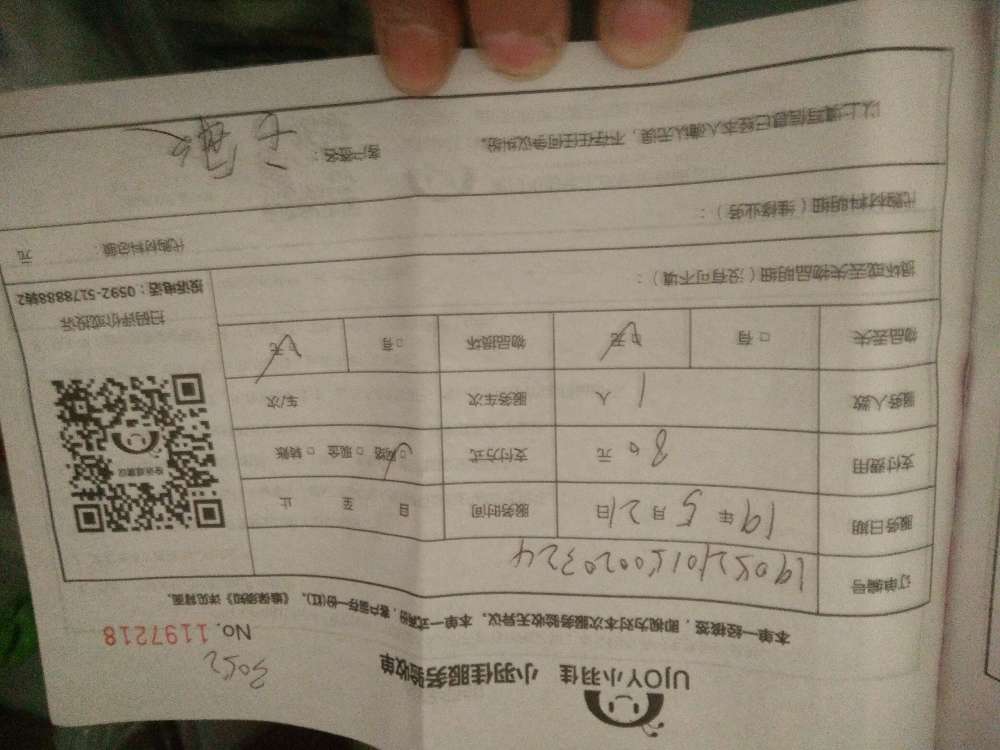 UJOY小羽佳 小羽佳服务验收单
3052
No. 1197218
本单一经接签，即视为对本次服务验收无异议。本单一式两份，客户留存一份(红)，《维保须知》详见背面。
订单编号 1905210150020324
服务日期 19年5月21日 服务时间 自 至 止
支付费用 80元 支付方式 □网络 □现金 □转账
服务人数 1人 服务车次 车/次
物品丢失 □有 □无 物品损坏 □有 □无
扫码评价或投诉
投诉电话：0592-5178888转2
损坏或丢失物品明细（没有可不填）：
代购材料明细（维修业务）：
代购材料总额： 元
以上填写信息已经本人确认无误，不存在任何争议纠纷。
客户签名：